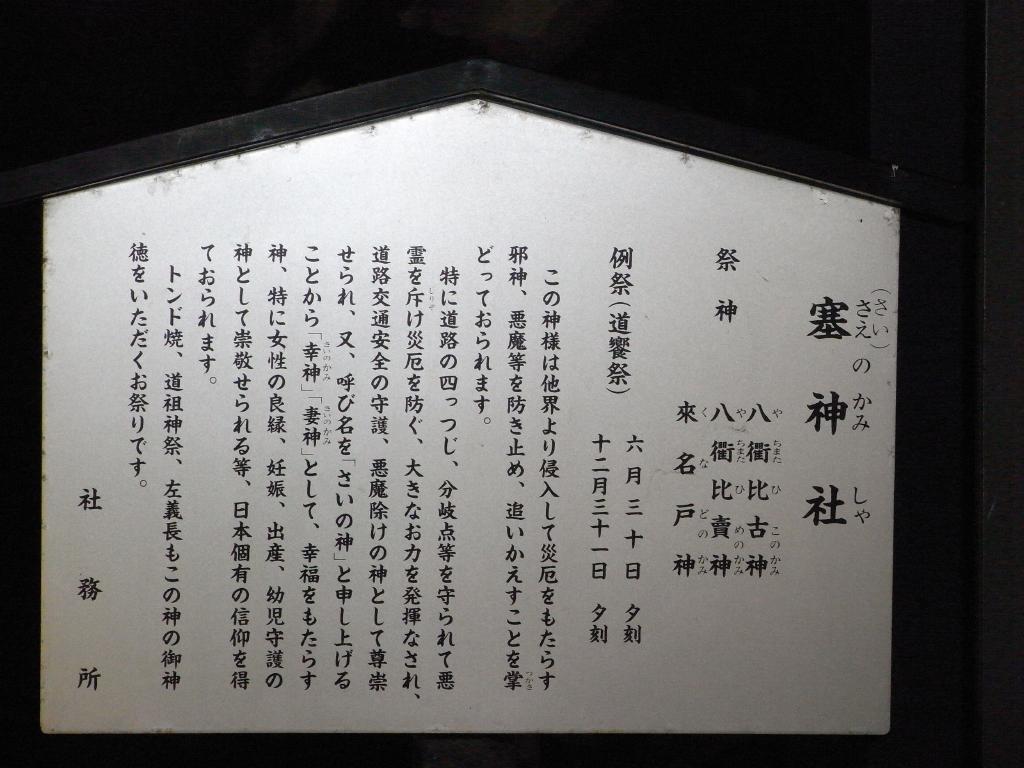 塞神社
(さい)
さえのかみしゃ
祭神
八衢比古神
やちまたひこのかみ
八衢比賣神
やちまたひめのかみ
來名戸神
くなどのかみ
例祭(道饗祭)
六月三十日 夕刻
十二月三十一日 夕刻
この神様は他界より侵入して災厄をもたらす
邪神、悪魔等を防ぎ止め、追いかえすことを掌
つかさ
どっておられます。
特に道路の四つつじ、分岐点等を守られて悪
霊を斥け災厄を防ぐ、大きなお力を発揮なされ、
しりぞ
道路交通安全の守護、悪魔除けの神として尊崇
せられ、又、呼び名を「さいの神」と申し上げる
ことから「幸神」「妻神」として、幸福をもたらす
さいのかみ さいのかみ
神、特に女性の良縁、妊娠、出産、幼児守護の
神として崇敬せられる等、日本個有の信仰を得
ておられます。
トンド焼、道祖神祭、左義長もこの神の御神
徳をいただくお祭りです。
社務所